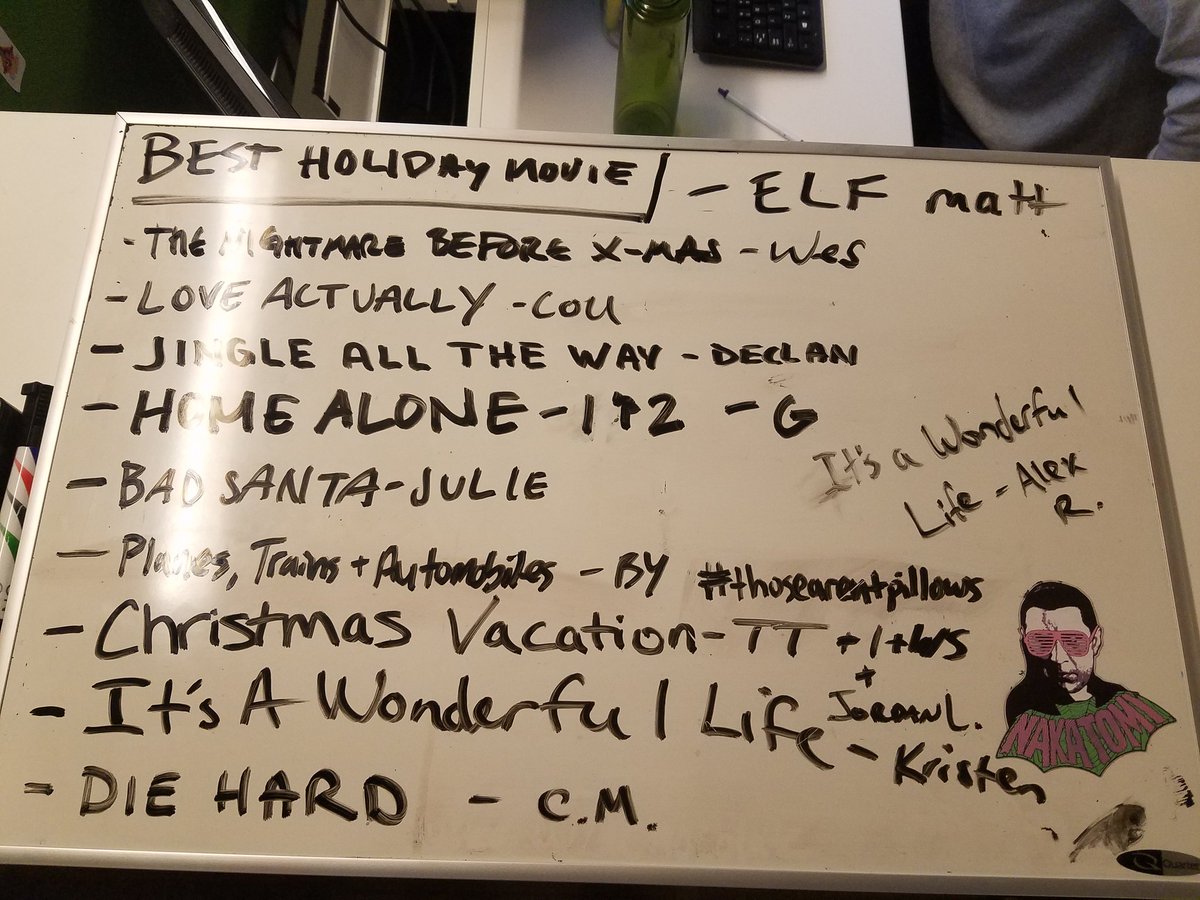 BEST HOLIDAY MOVIE
- ELF matt
- THE NIGHTMARE BEFORE X-MAS - Wes
- LOVE ACTUALLY - COLL
- JINGLE ALL THE WAY - DECLAN
- HOME ALONE - 1+2 - G
It's a Wonderful
Life - Alex
R.
- BAD SANTA - JULIE
- Planes, Trains + Automobiles - BY #thosearentpillows
- Christmas Vacation - TT + 1 +
+
JORDAN L.
- It's A Wonderful Life - Kristen
NAKATOMI
- DIE HARD - C.M.